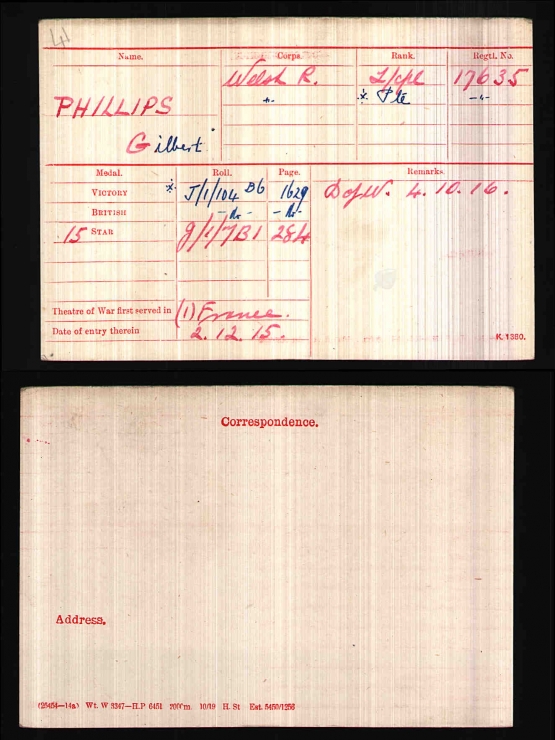 Name. Corps. Rank. Regtl. No.
Welsh R. L/cpl 17635
PHILLIPS -"- * Pte -"-
Gilbert
Medal. Roll. Page. Remarks.
VICTORY * J/1/104 B6 1629 D of W. 4.10.16.
BRITISH -do- -do-
15 STAR J/1/7B1 284
Theatre of War first served in (1) France.
Date of entry therein 2.12.15.
K. 1380.
Correspondence.
Address.
(25454—14a) Wt. W 3347—H.P 6451 700m. 10/19 H. St Est. 5450/1256